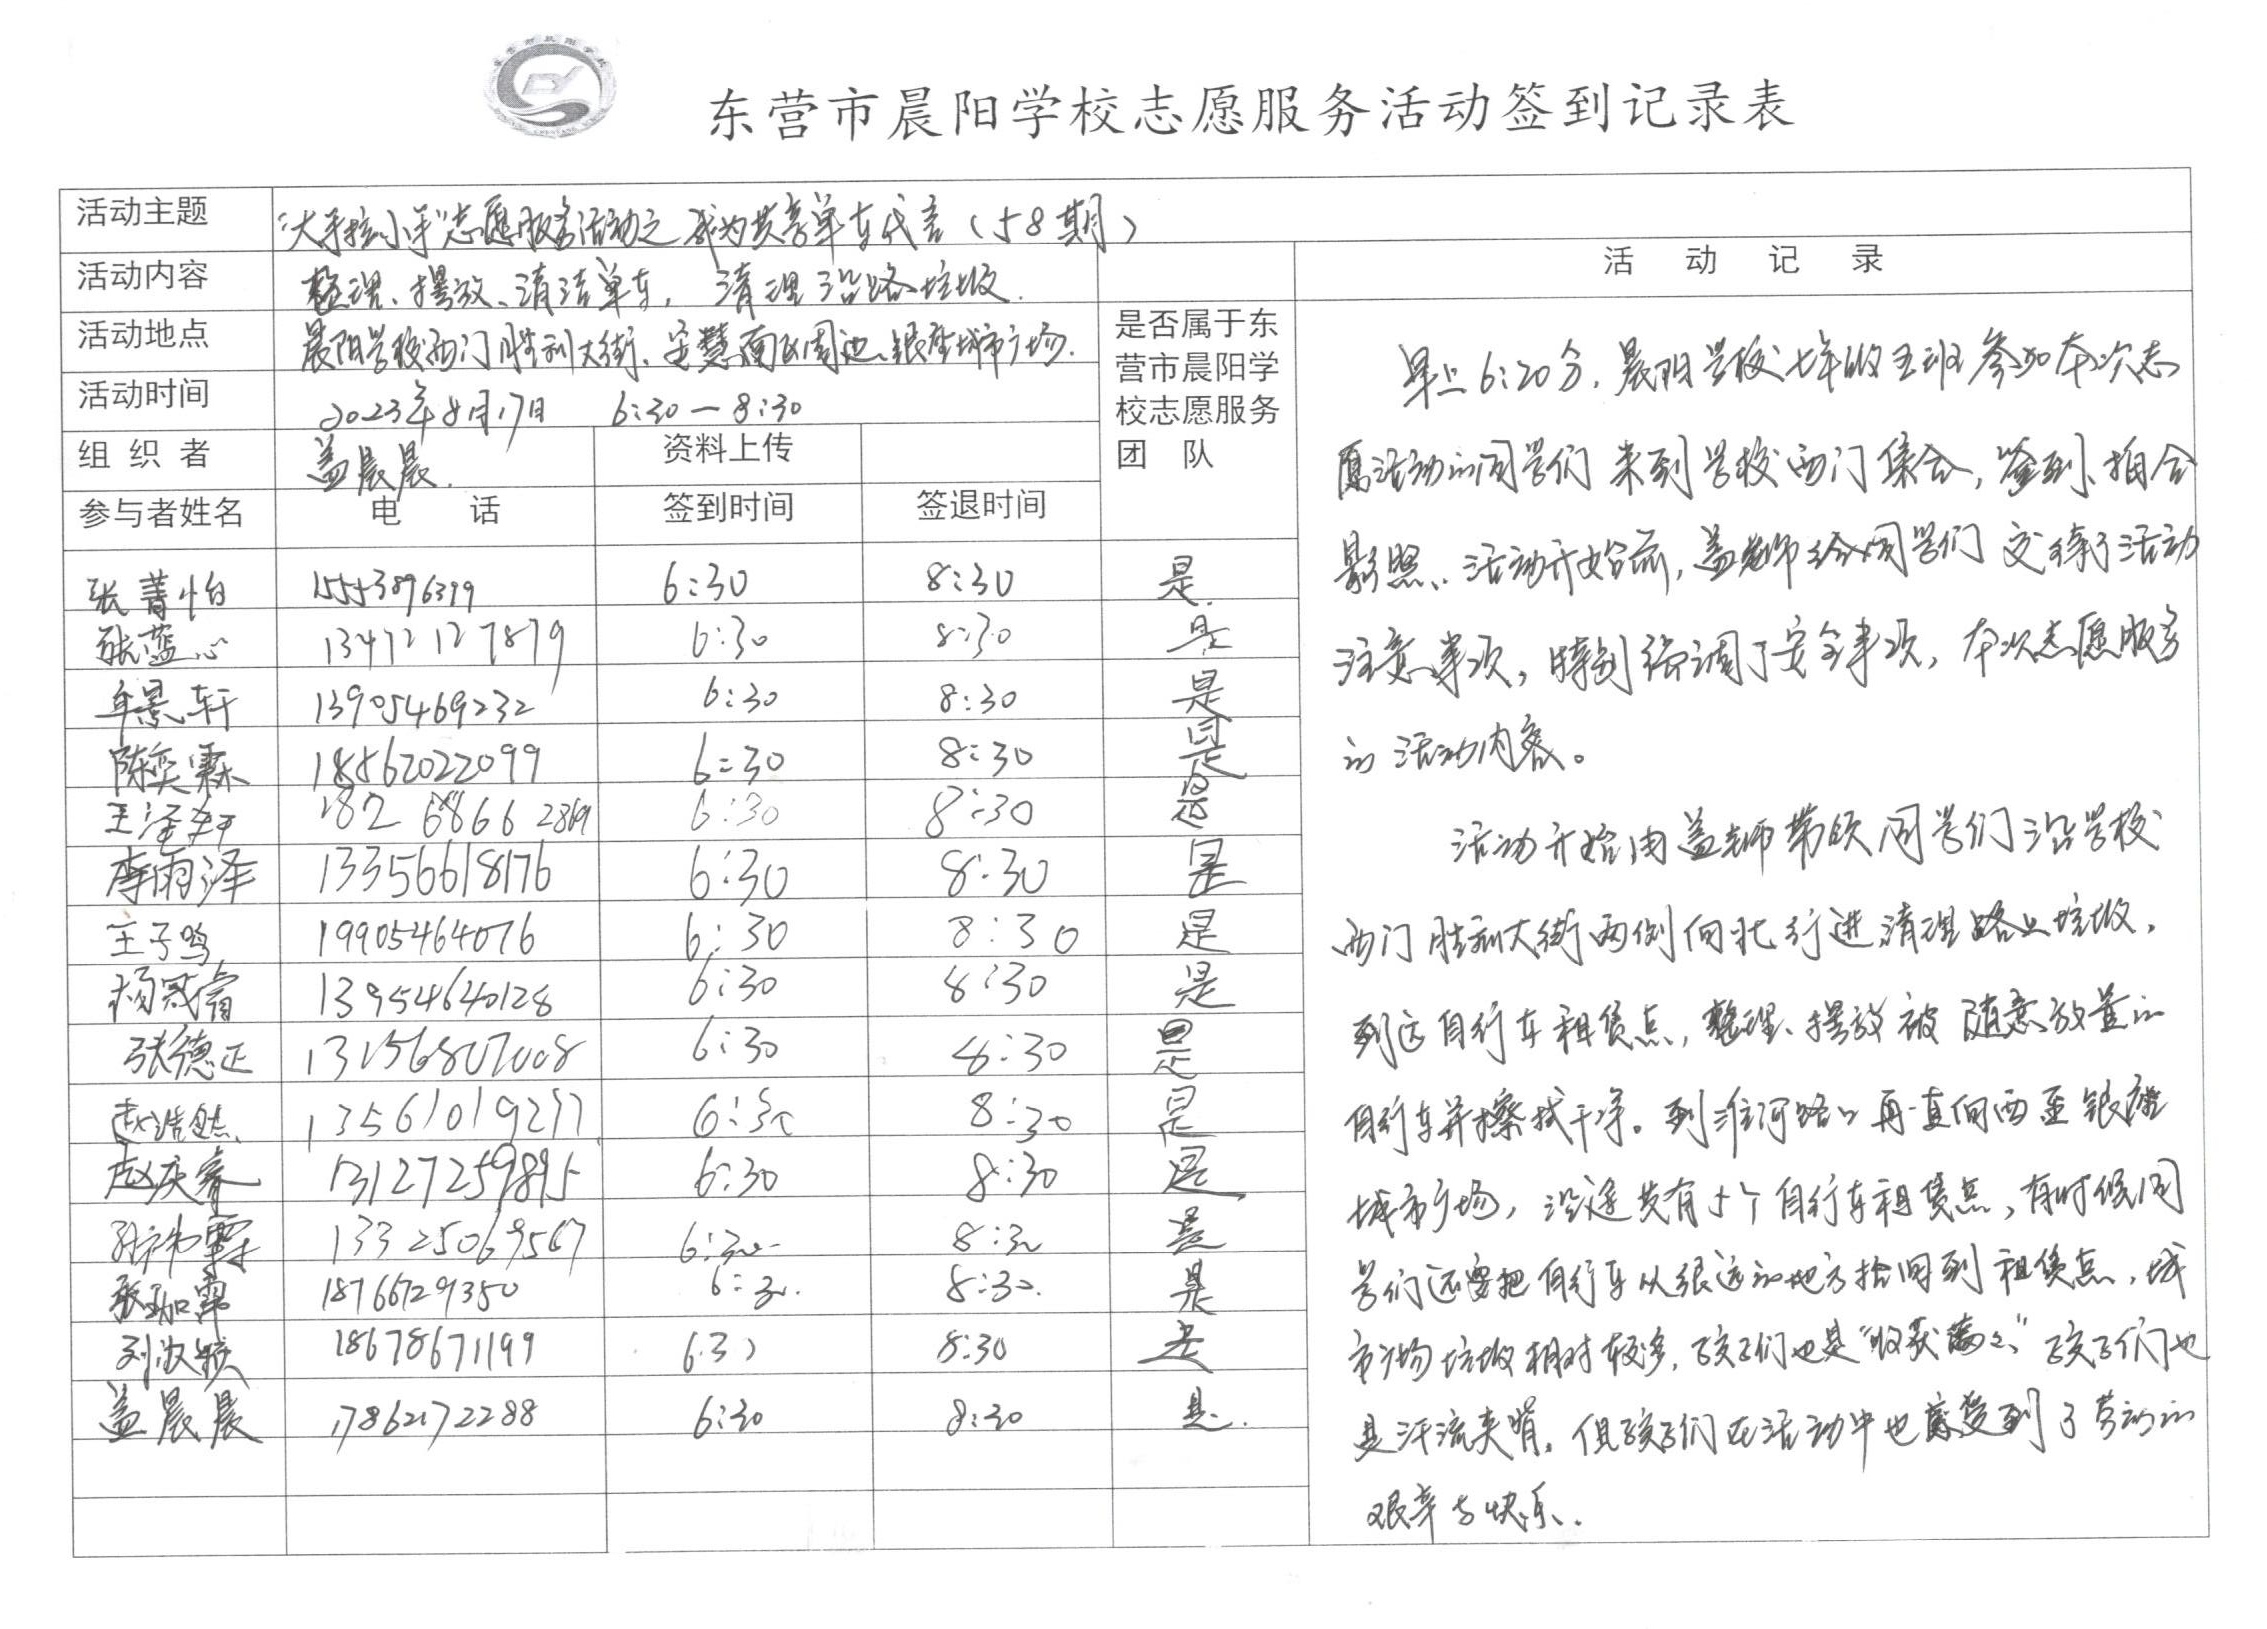 东营市晨阳学校志愿服务活动签到记录表
活动主题 "大手拉小手"志愿服务活动之 我为共享单车代言（58期）
活动内容 整理、摆放、清洁单车，清理沿路垃圾.
活动地点 晨阳学校西门胜利大街、安慧南区周边、银座城市广场.
活动时间 2023年8月17日 6:30—8:30
组织者 盖晨晨. 资料上传
参与者姓名 电话 签到时间 签退时间
是否属于东
营市晨阳学
校志愿服务
团队
张菁怡 6:30 8:30 是.
张蓝心 13472127879 6:30 8:30 是
牟景轩 13905469232 6:30 8:30 是
陈奕霖 18562022099 6:30 8:30 是
王泽 182 6866 2869 6:30 8:30 是
李雨泽 13356618176 6:30 8:30 是
王子鸣 19905464076 6:30 8:30 是
杨晟睿 13954640128 6:30 8:30 是
张德正 13156807008 6:30 8:30 是
赵浩然 13561019277 6:30 8:30 是
赵庆睿 13127259895 6:30 8:30 是
13325069567 6:30 8:30 是
张珈霈 18766729350 6:30 8:30 是
刘 18678671199 6:30 8:30 是
盖晨晨 17862172288 6:30 8:30 是.
活动记录
早上6:20分，晨阳学校七年级五班参加本次志
愿活动的同学们来到学校西门集合，签到、拍合
影照、活动开始前，盖老师给同学们交待了活动
注意事项，特别强调了安全事项，本次志愿服务
的活动内容。
活动开始由盖老师带领同学们沿学校
西门胜利大街两侧向北行进清理路上垃圾，
到达自行车租赁点，整理、摆放被随意放置的
自行车并擦拭干净。到淮河路口再一直向西至银座
城市广场，沿途共有5个自行车租赁点，有时候同
学们还要把自行车从很远的地方抬回到租赁点，城
市广场垃圾相对较多，孩子们也是"收获满满"孩子们也
是汗流夹背，但孩子们在活动中也感受到了劳动的
艰辛与快乐.